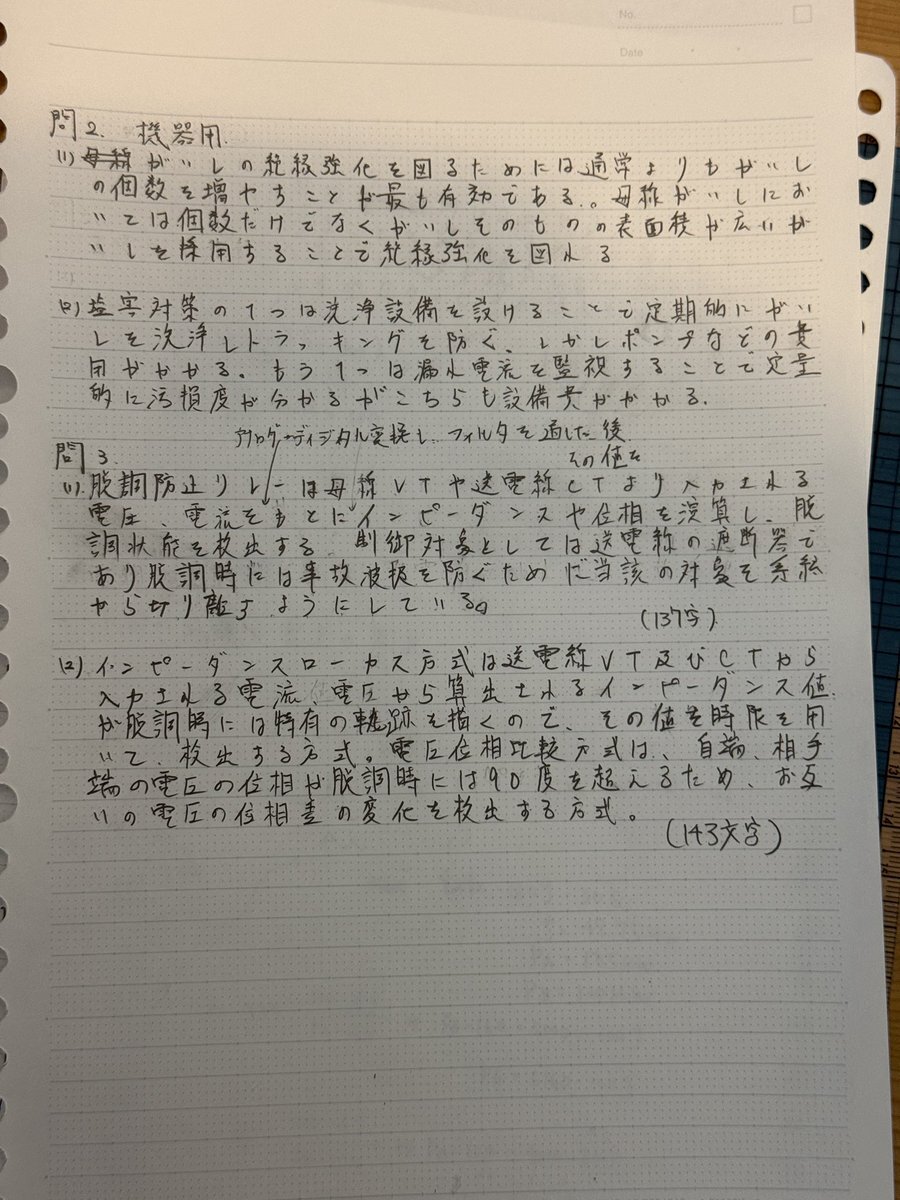 No.
Date
問2. 機器用
(1) 母線がいしの絶縁強化を図るためには通常よりもがいし
の個数を増やすことが最も有効である。母線がいしにお
いては個数だけでなくがいしそのものの表面積が広いが
いしを採用することで絶縁強化を図れる
(2) 塩害対策の1つは洗浄設備を設けることで定期的にがい
しを洗浄しトラッキングを防ぐ、しかしポンプなどの費
用がかかる。もう1つは漏れ電流を監視することで定量
的に汚損度が分かるがこちらも設備費がかかる。
アナログ・ディジタル変換し、フィルタを通した後
問3.
その値を
(1) 脱調防止リレーは母線VTや送電線CTより入力される
電圧、電流をもとにインピーダンスや位相を演算し、脱
調状態を検出する。制御対象としては送電線の遮断器で
あり脱調時には事故波及を防ぐために当該の対象を系統
から切り離すようにしている。
(137字)
(2) インピーダンスローカス方式は送電線VT及びCTから
入力される電流、電圧から算出されるインピーダンス値
が脱調時には特有の軌跡を描くので、その値を時限を用
いて、検出する方式。電圧位相比較方式は、自端、相手
端の電圧の位相が脱調時には90度を超えるため、お互
いの電圧の位相差の変化を検出する方式。
(143文字)